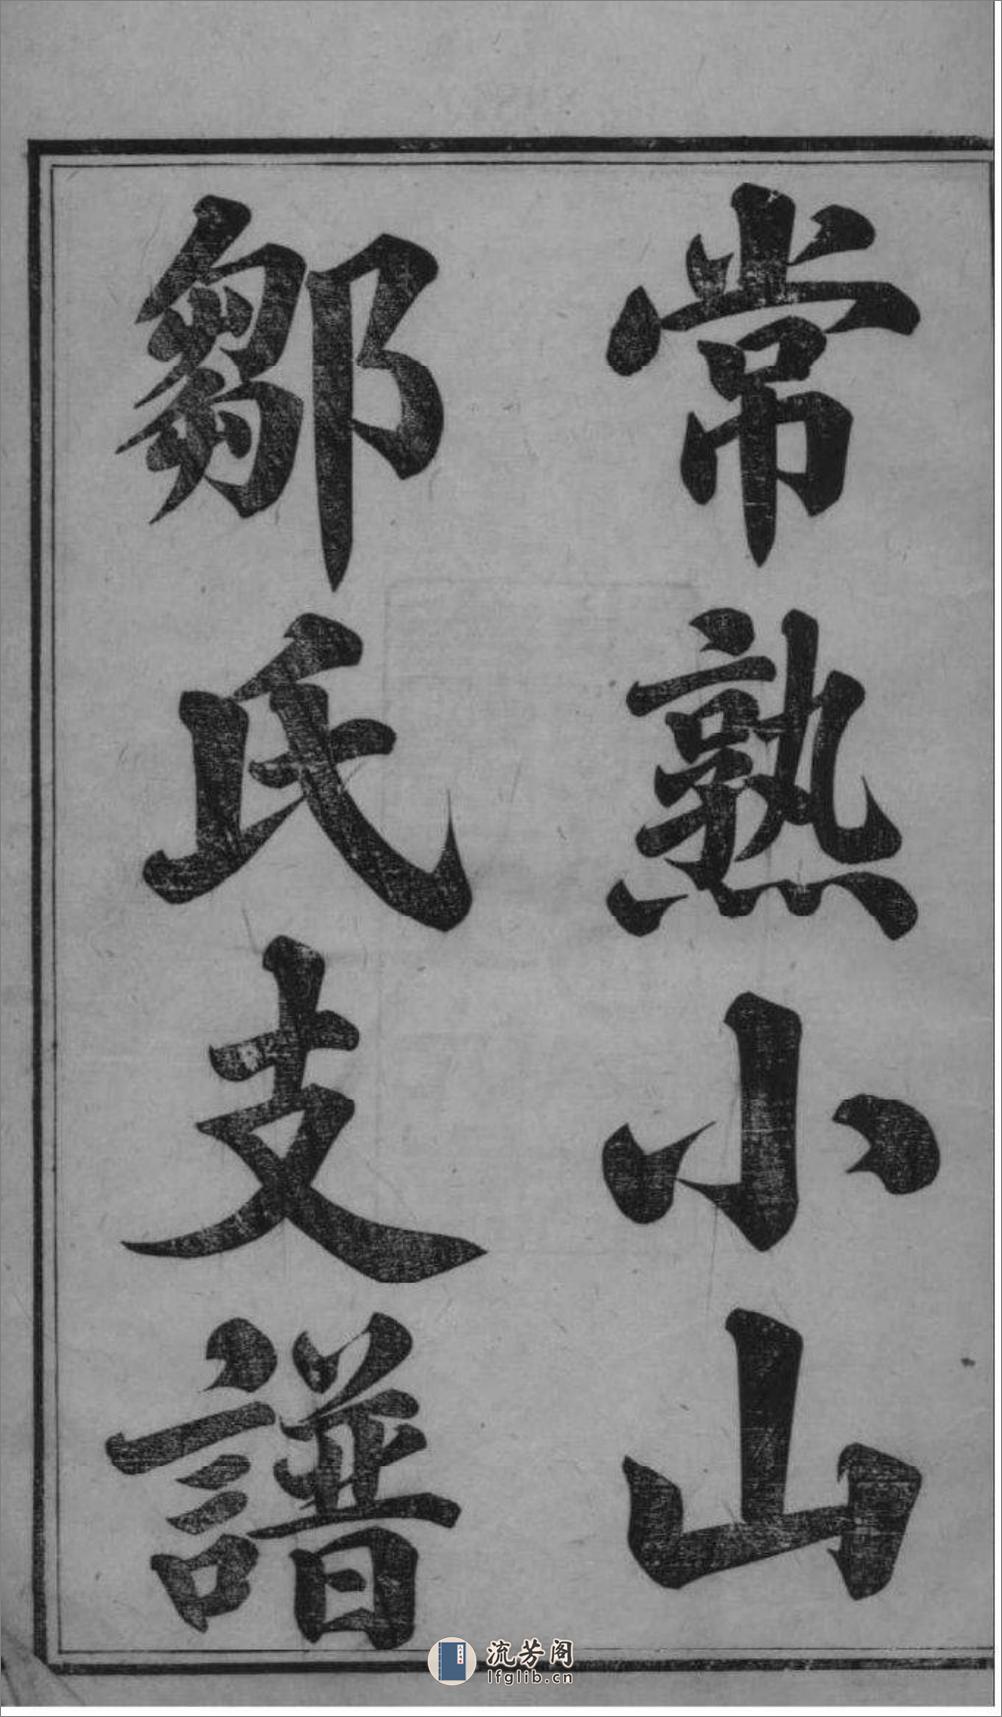 常熟小山
鄒氏支譜
流芳阁
lfglib.cn